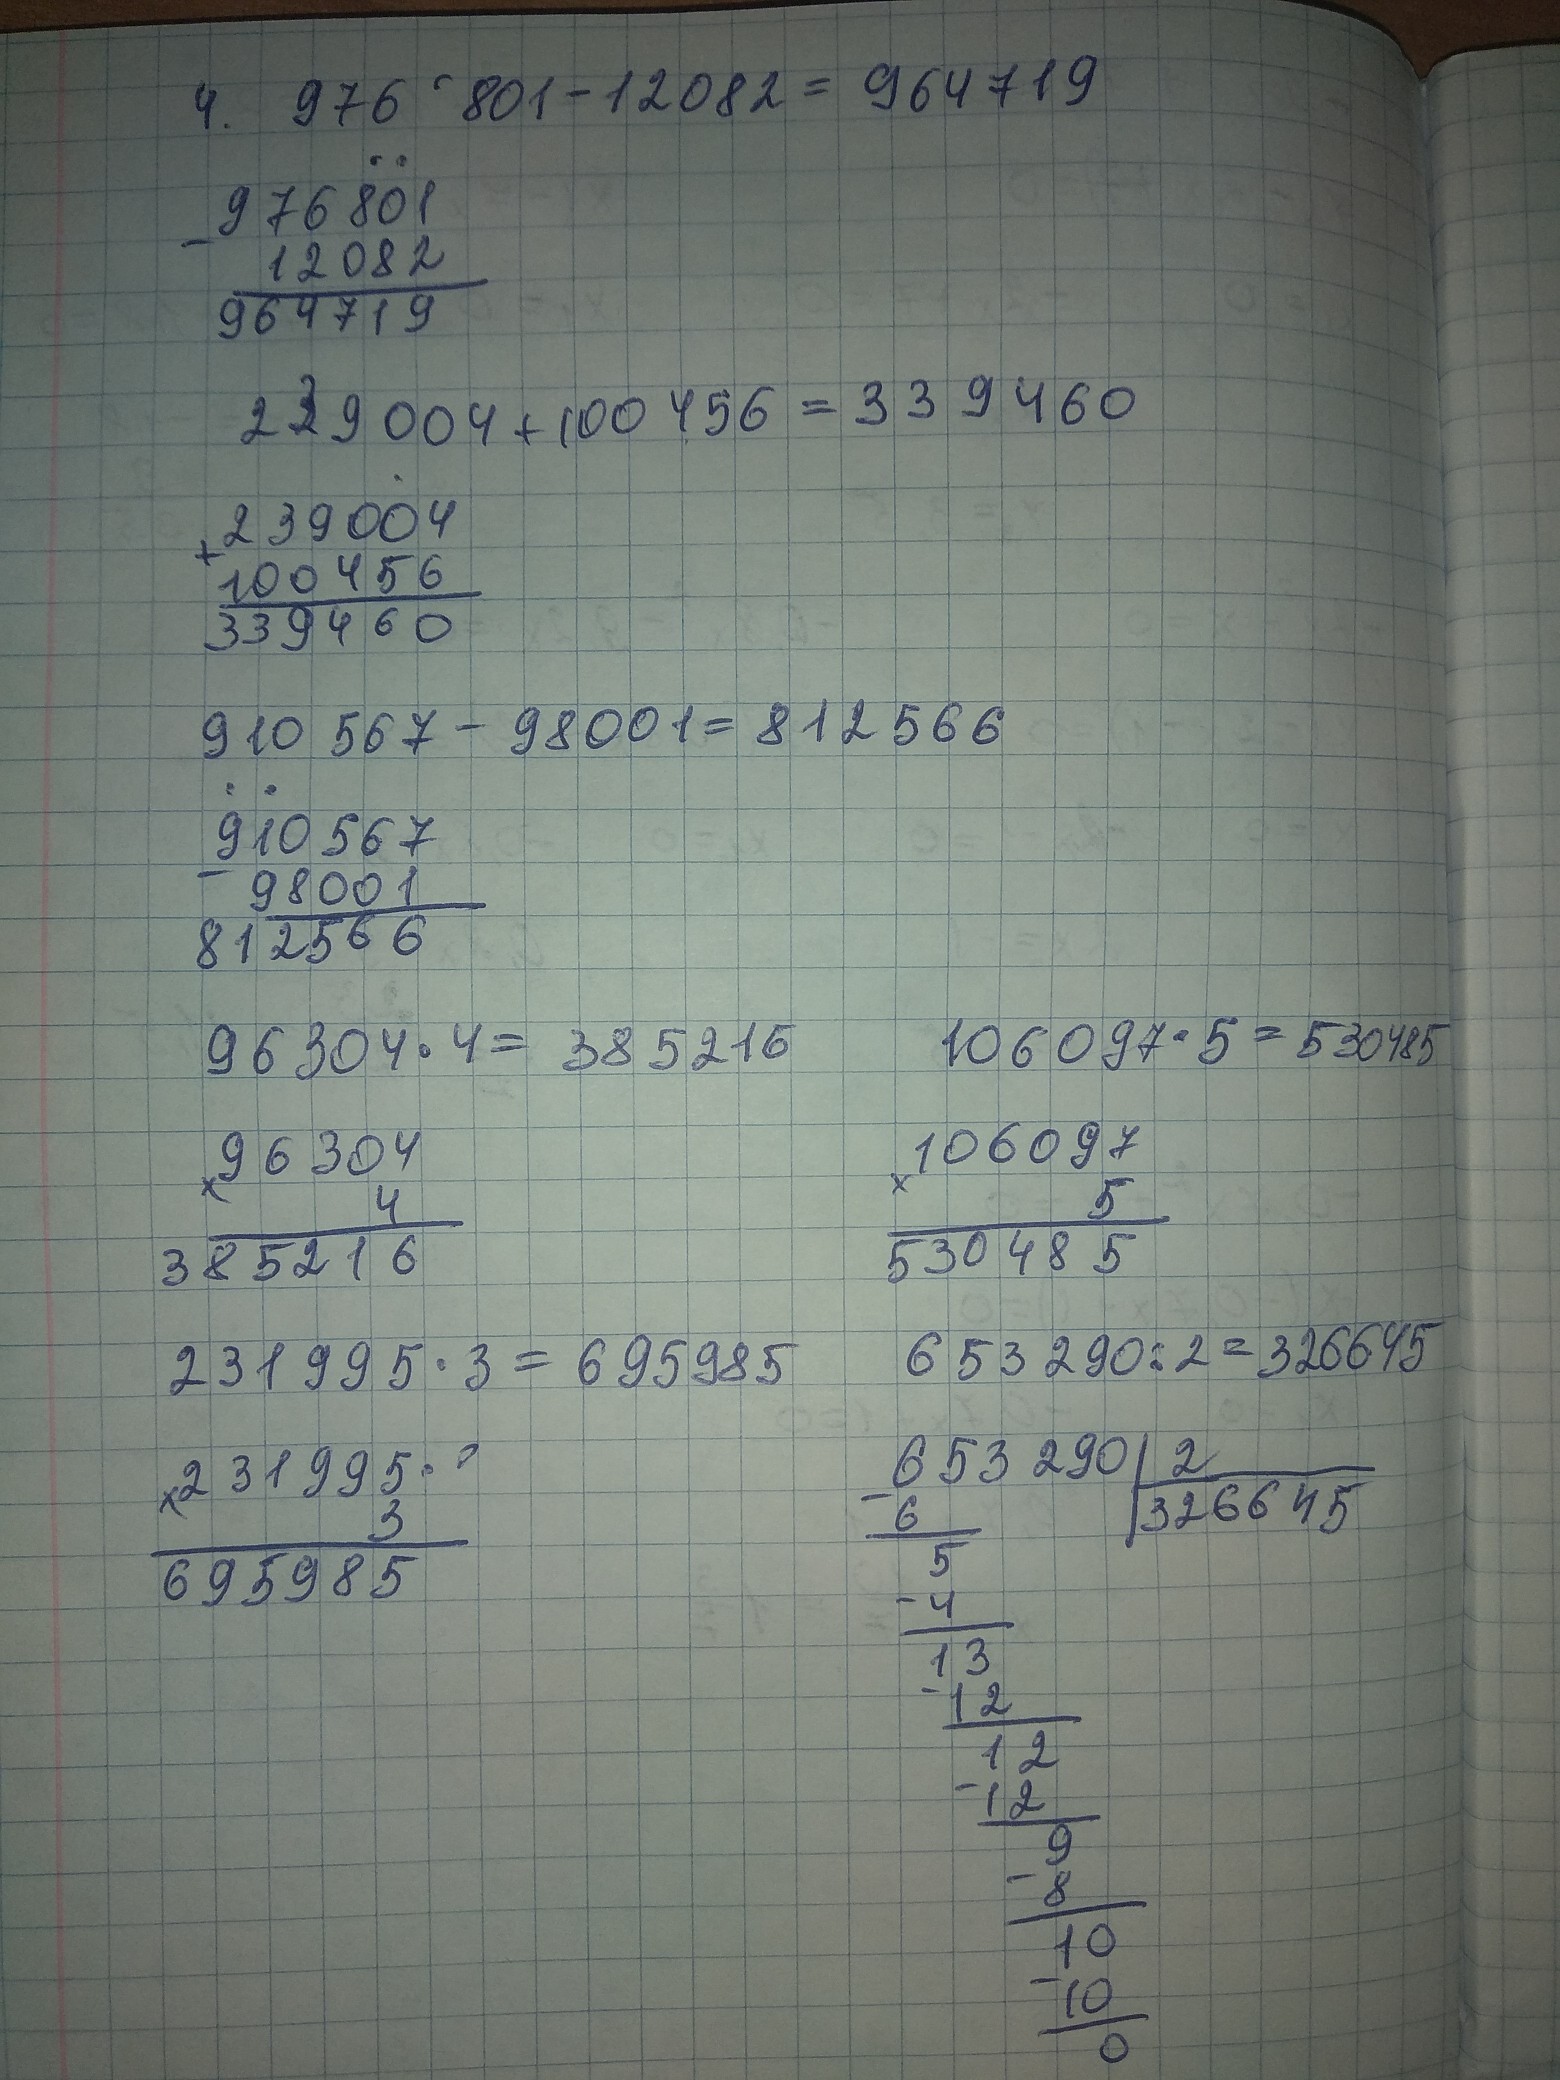 4. 976 801 - 12082 = 964719
- 976801
12082
964719
239 004 + 100 456 = 339460
+ 239004
100456
339460
910 567 - 98001 = 812566
- 910567
98001
812566
96304 · 4 = 385216
× 96304
4
385216
106097 · 5 = 530485
× 106097
5
530485
231995 · 3 = 695985
× 231995
3
695985
653 290 : 2 = 326645
- 653 290 | 2
6 | 326645
5
- 4
13
- 12
12
- 12
9
- 8
10
- 10
0